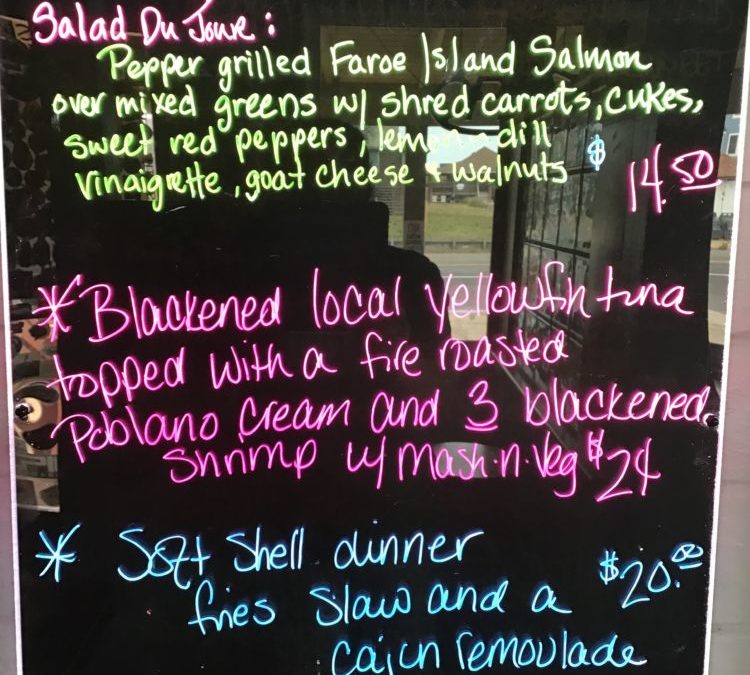 Salad Du Joure:
Pepper grilled Faroe Island Salmon
over mixed greens w/ shred carrots, cukes,
sweet red peppers, lemon dill
vinaigrette, goat cheese & walnuts $ 14.50
* Blackened local yellowfin tuna
topped with a fire roasted
Poblano cream and 3 blackened
shrimp w/ mash.n.veg $24
* Soft Shell dinner
fries slaw and a $20.00
cajun remoulade